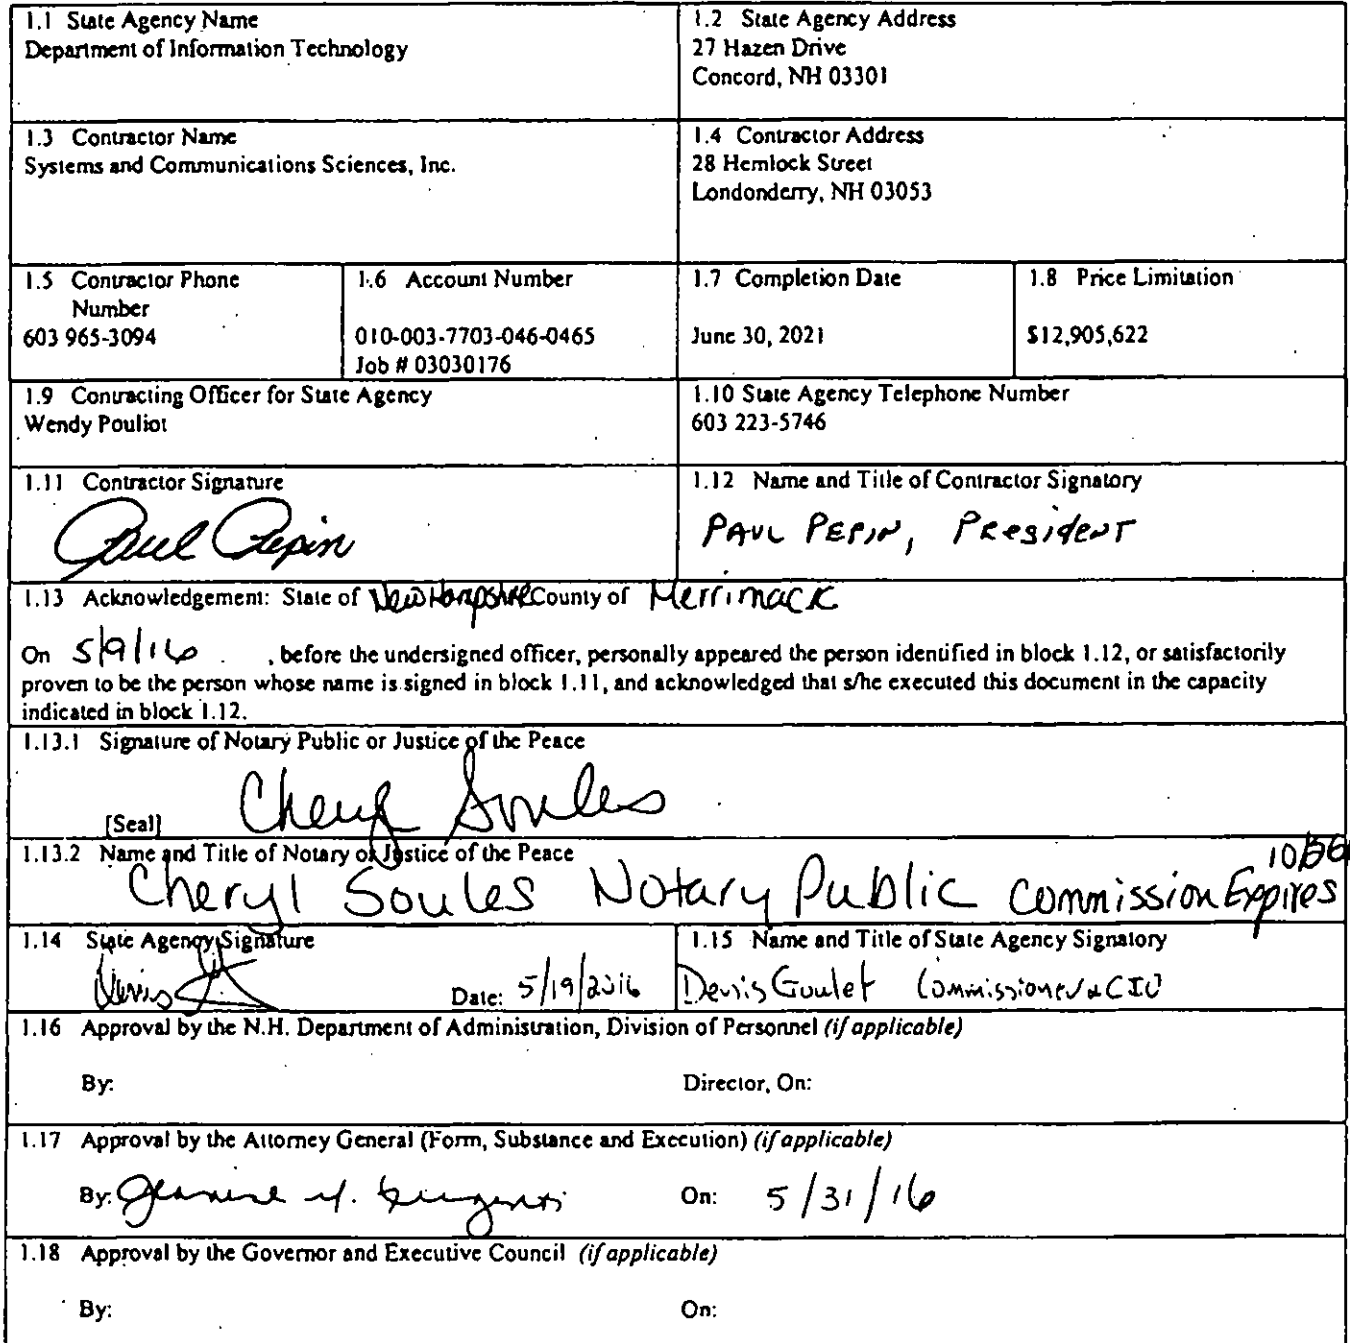 1.1 State Agency Name
Department of Information Technology
1.2 State Agency Address
27 Hazen Drive
Concord, NH 03301
1.3 Contractor Name
Systems and Communications Sciences, Inc.
1.4 Contractor Address
28 Hemlock Street
Londonderry, NH 03053
1.5 Contractor Phone
Number
603 965-3094
1.6 Account Number
010-003-7703-046-0465
Job # 03030176
1.7 Completion Date
June 30, 2021
1.8 Price Limitation
$12,905,622
1.9 Contracting Officer for State Agency
Wendy Pouliot
1.10 State Agency Telephone Number
603 223-5746
1.11 Contractor Signature
Paul Pepin
1.12 Name and Title of Contractor Signatory
PAUL PEPIN, PResideNT
1.13 Acknowledgement: State of New Hampshire County of Merrimack
On 5/9/16 , before the undersigned officer, personally appeared the person identified in block 1.12, or satisfactorily
proven to be the person whose name is signed in block 1.11, and acknowledged that s/he executed this document in the capacity
indicated in block 1.12.
1.13.1 Signature of Notary Public or Justice of the Peace
Cheryl Soules
[Seal]
1.13.2 Name and Title of Notary or Justice of the Peace
Cheryl Soules Notary Public Commission Expires
1.14 State Agency Signature
Denis
Date: 5/19/2016
1.15 Name and Title of State Agency Signatory
Denis Goulet Commissioner & CIO
1.16 Approval by the N.H. Department of Administration, Division of Personnel (if applicable)
By:
Director, On:
1.17 Approval by the Attorney General (Form, Substance and Execution) (if applicable)
By:
On: 5/31/16
1.18 Approval by the Governor and Executive Council (if applicable)
By:
On: